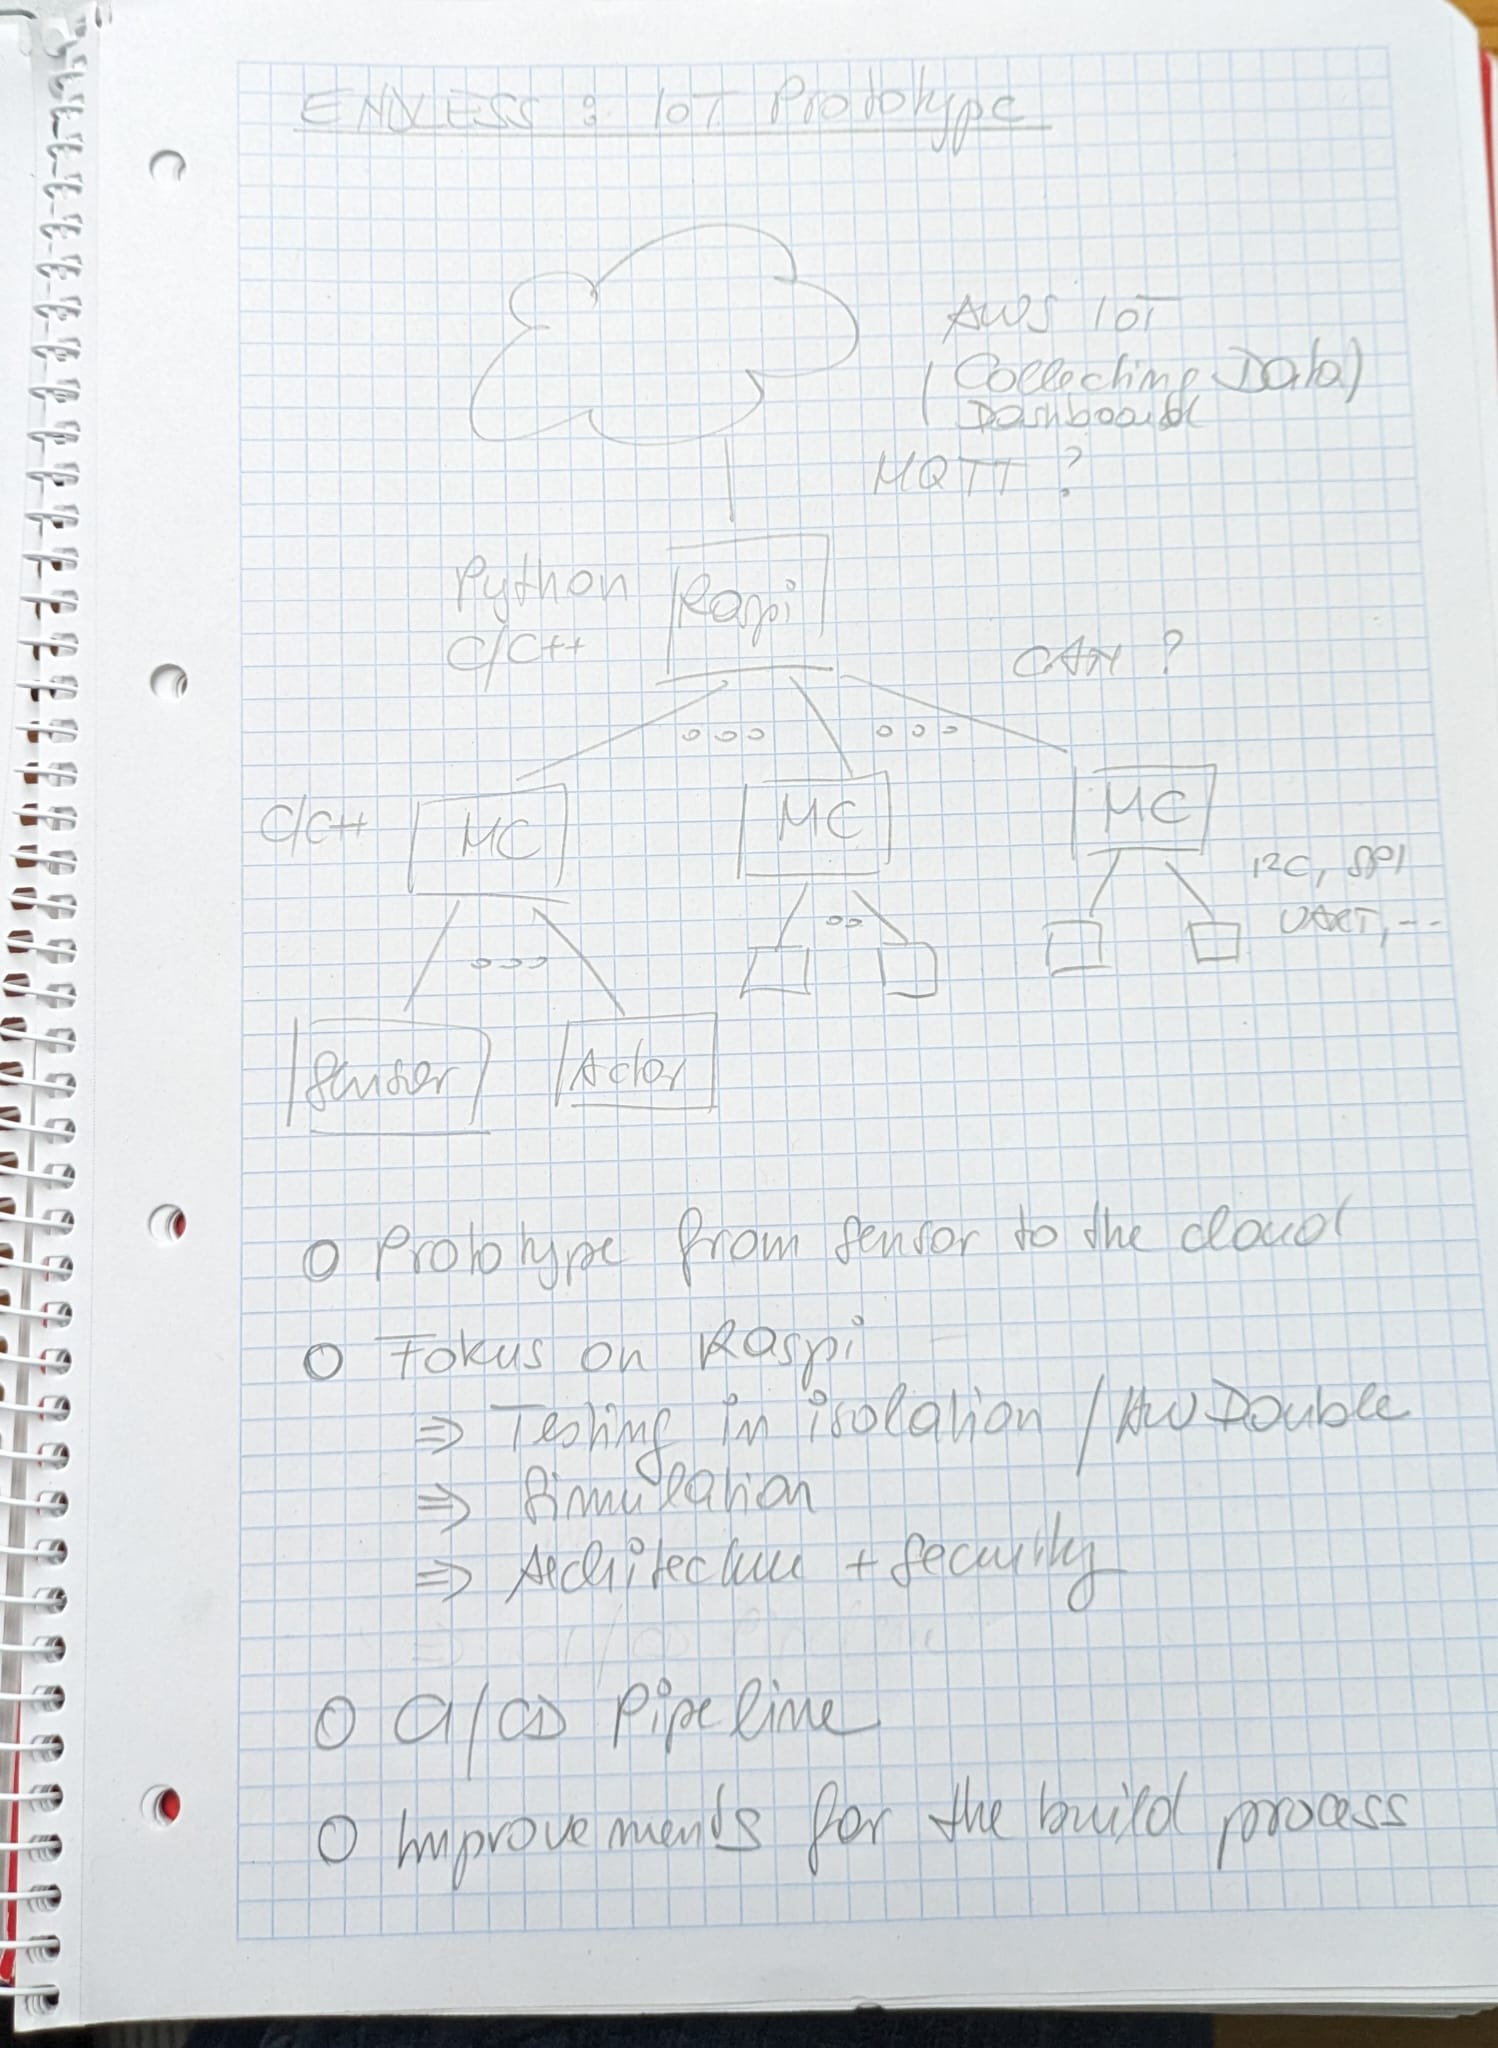 ENDLESS : IoT Prototype
AWS IoT
(Collecting Data)
Dashboard
MQTT ?
Python
Raspi
C/C++
CAN ?
C/C++
MC
MC
MC
I2C, SPI
UART, ---
Sensor
Actor
Prototype from sensor to the cloud
Fokus on Raspi
⇒ Testing in isolation / HW Double
⇒ Simulation
⇒ Architecture + Security
CI/CD Pipeline
Improvements for the build process